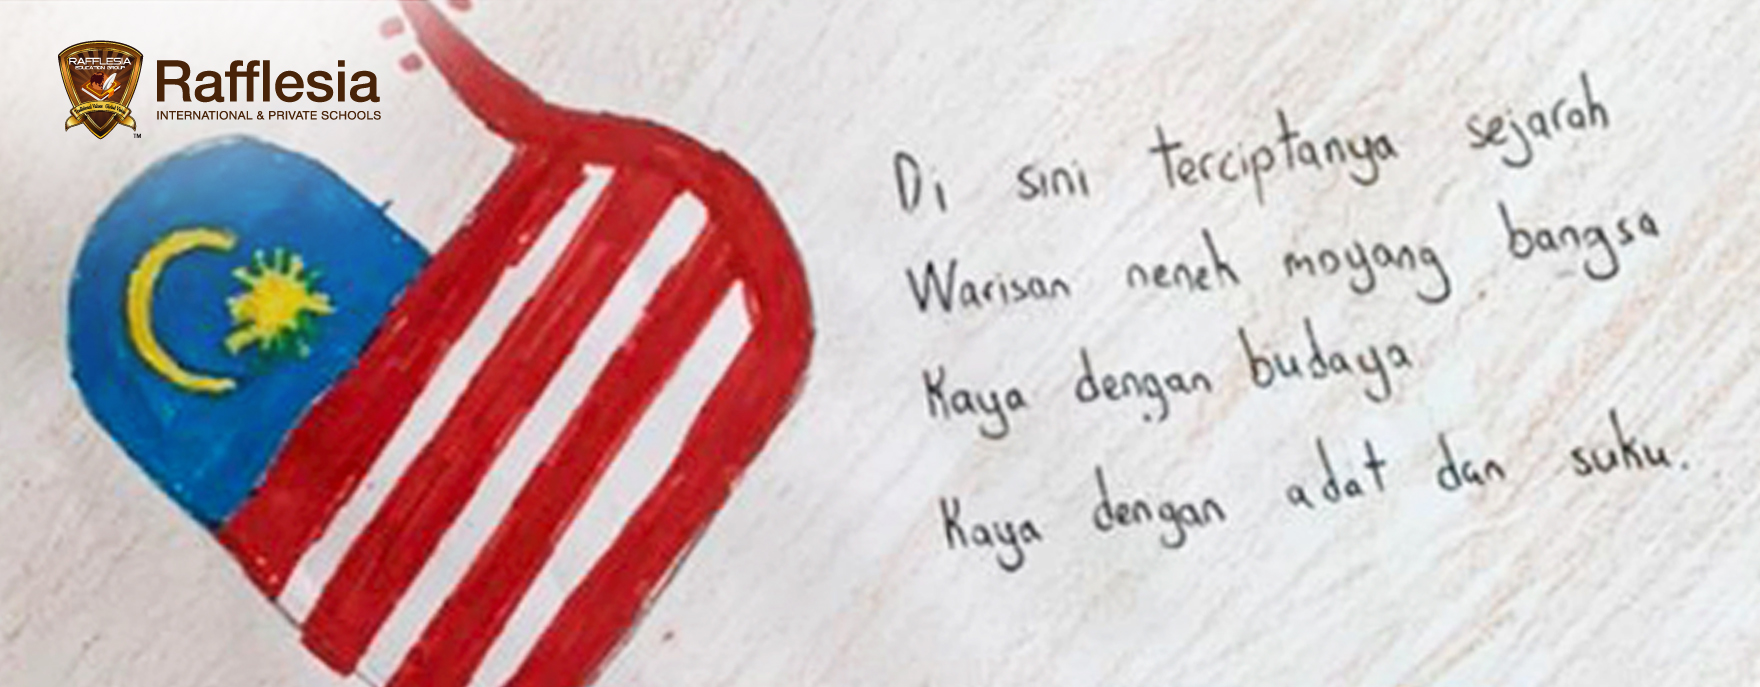 RAFFLESIA
EDUCATION GROUP
Rafflesia
INTERNATIONAL & PRIVATE SCHOOLS
TM
Di sini terciptanya sejarah
Warisan nenek moyang bangsa
Kaya dengan budaya
Kaya dengan adat dan suku.